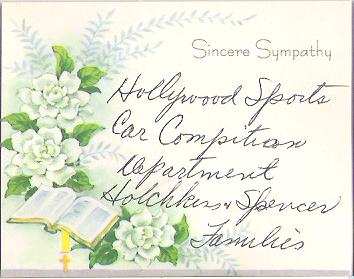 Sincere Sympathy
Hollywood Sports
Car Compition
Department
Hotchkiss & Spencer
Families